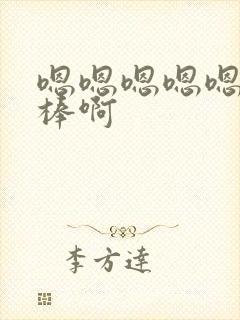 嗯嗯嗯嗯嗯
棒啊
李方達